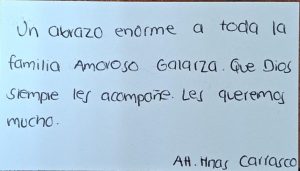 Un abrazo enorme a toda la
familia Amoroso Galarza. Que Dios
siempre les acompañe. Les queremos
mucho.
Att. Hnas Carrasco